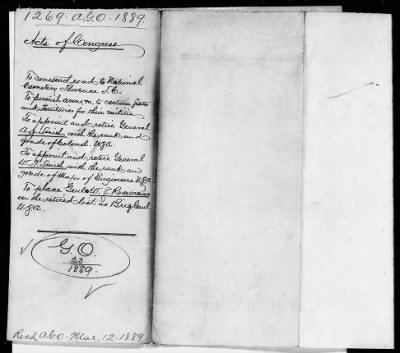 1269. A.G.O. 1889.
Acts of Congress
To construct road to National
Cemetery Florence S.C.
To furnish arms &c. to certain states
and Territories for their militia
To appoint and retire General
A. J. Smith, with the rank and
grade of Colonel. U.S.A.
To appoint and retire General
W. F. Smith, with the rank and
grade of Major of Engineers U.S.A.
To place Genl. W. S. Rosecrans
on the retired list as Brig. Genl
U.S.A.
G.O.
23
1889.
Recd. A.G.O. Mar. 12-1889